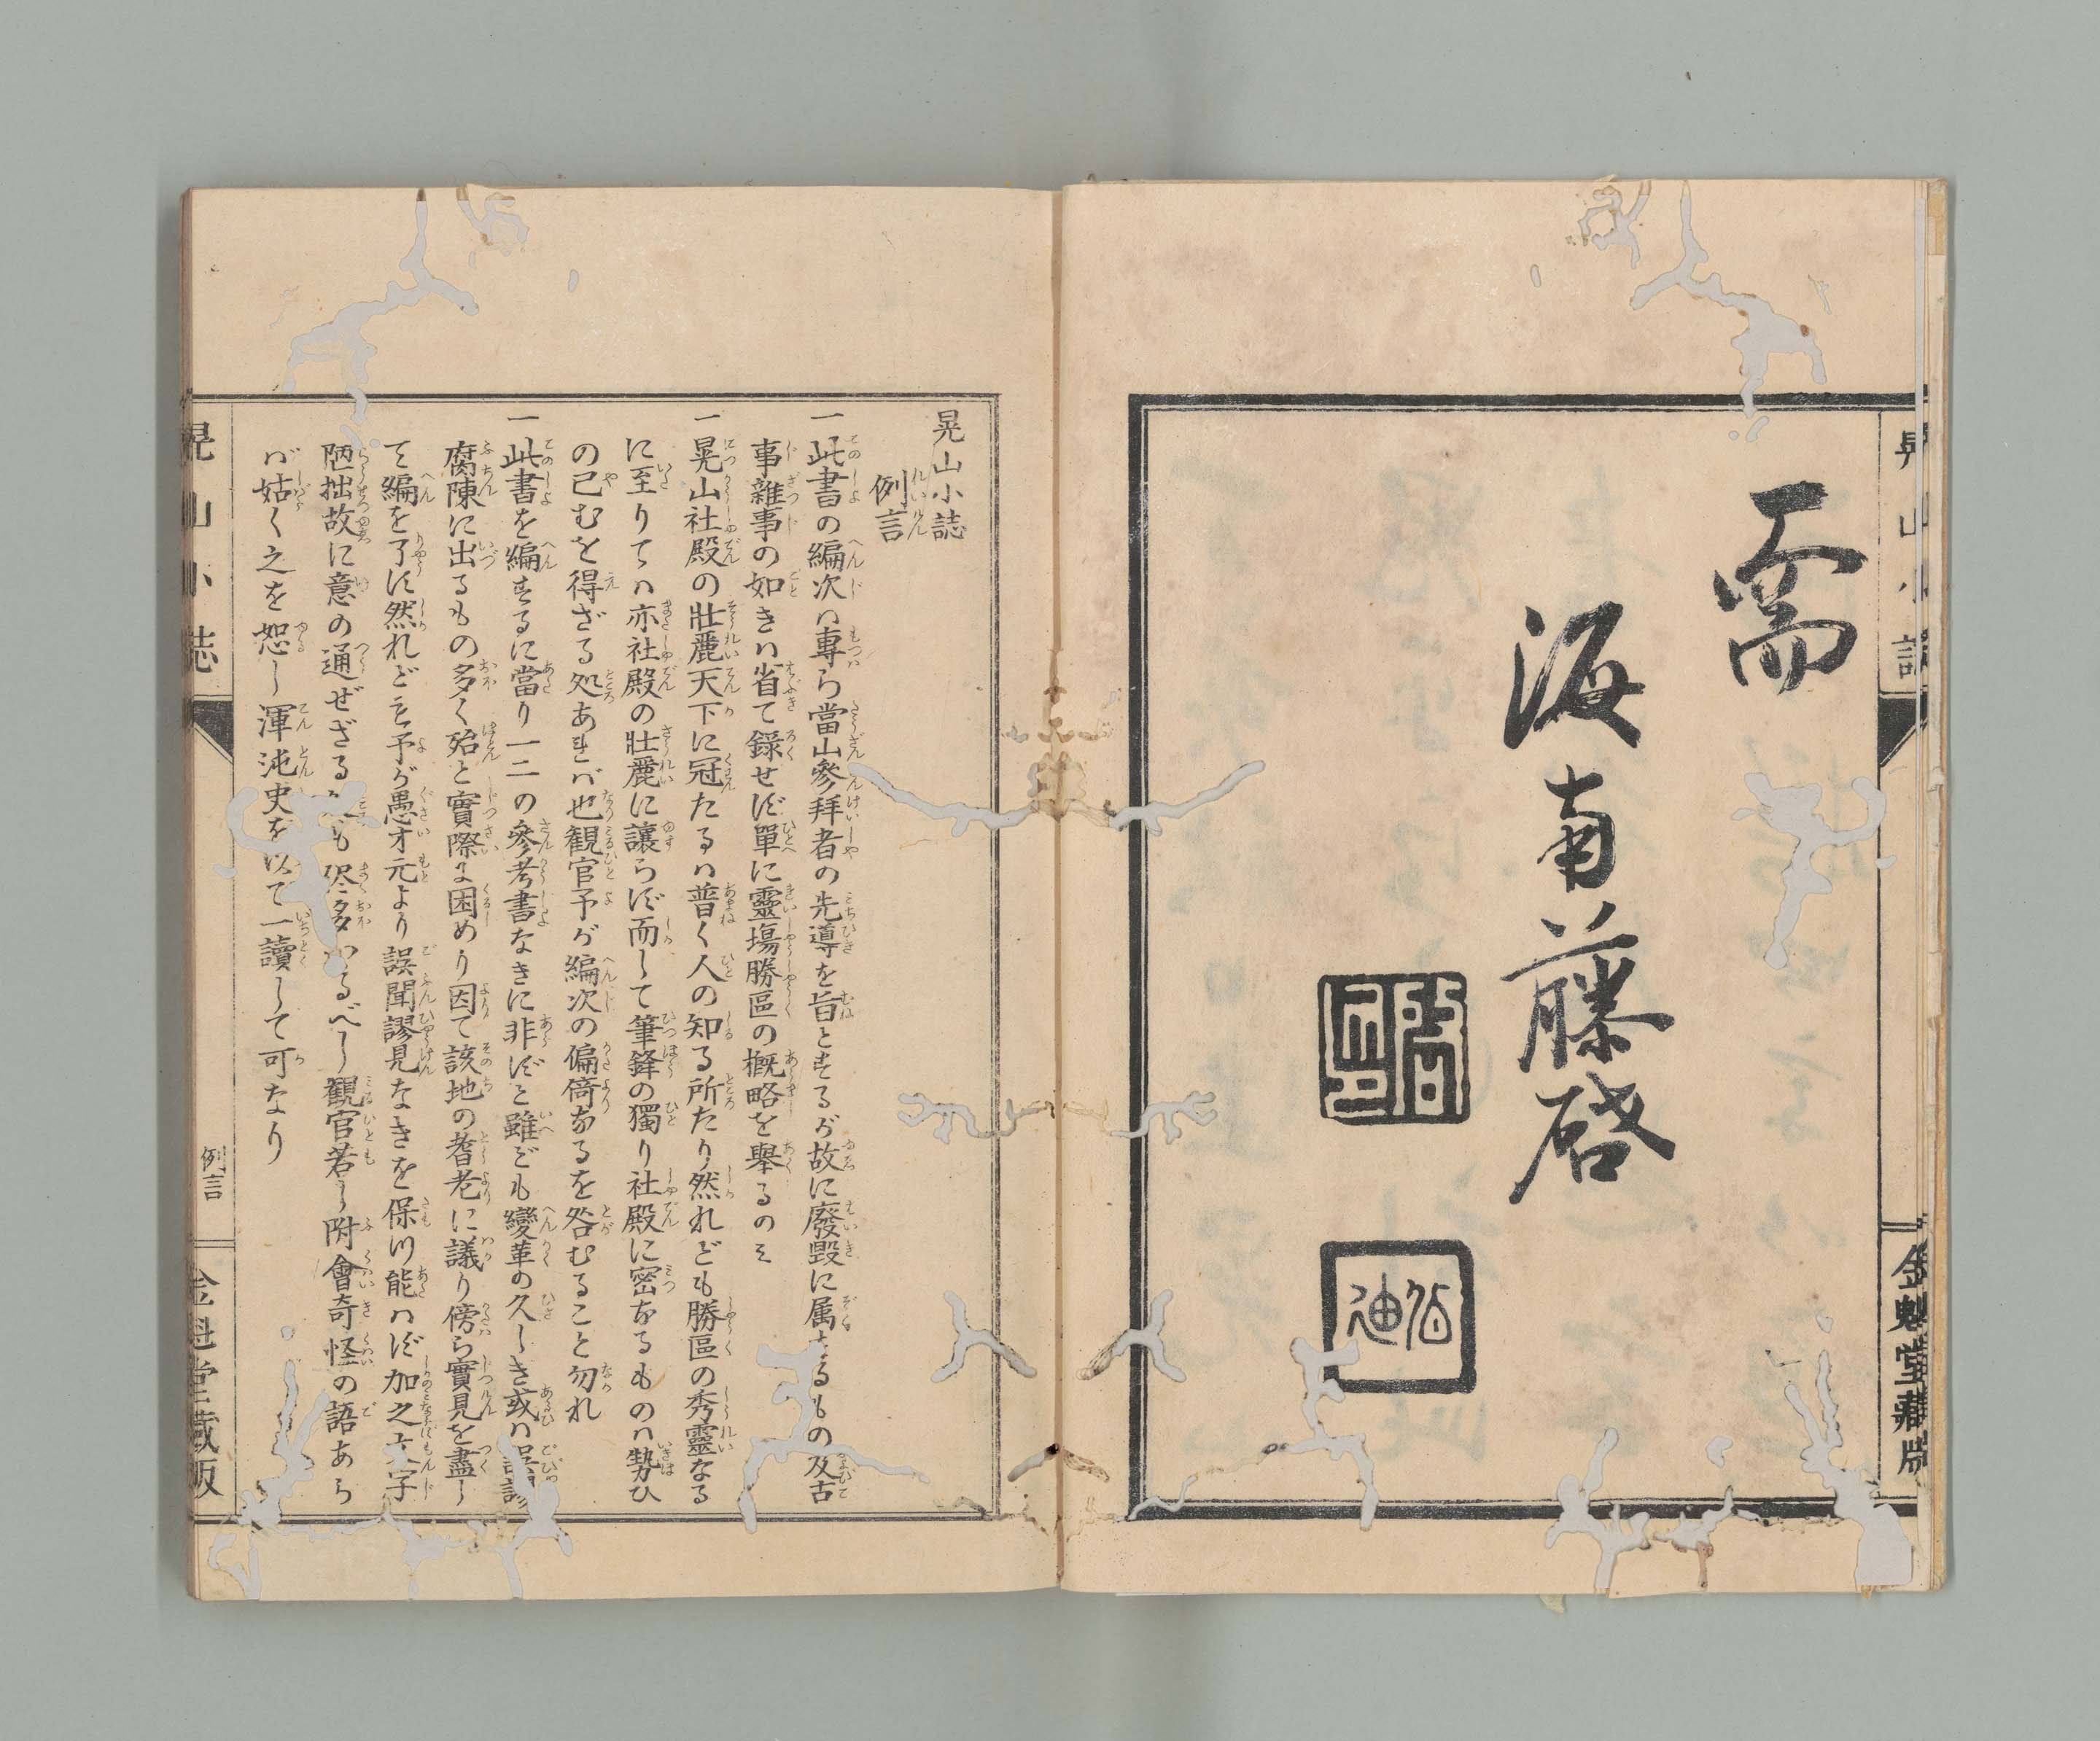 需
海南藤啓
晃山小誌
金魁堂藏版
晃山小誌
例言
一此書の編次ハ專ら當山參拜者の先導を旨とするが故に廢毀に属するもの及古
事雜事の如きハ省て錄せず單に靈塲勝區の概略を擧るのミ
一晃山社殿の壯麗天下に冠たるハ普く人の知る所たり然れども勝區の秀靈なる
に至りてハ亦社殿の壯麗に讓らず而して筆鋒の獨り社殿に密なるものハ勢ひ
の已むを得ざる処あれバ也観官予が編次の偏倚なるを咎むること勿れ
一此書を編するに當り一二の參考書なきに非ずと雖ども變革の久しき或ハ
腐陳に出るもの多く殆と實際に困めり因て該地の耆老に議り傍ら實見を盡し
て編を了す然れども予が愚才元より誤聞謬見なきを保つ能ハず加之文字
陋拙故に意の通ぜざる も尽多かるべし観官若し附會奇怪の語あら
バ姑く之を恕し渾沌史を以て一讀して可なり
晃山小誌
例言
金魁堂藏版